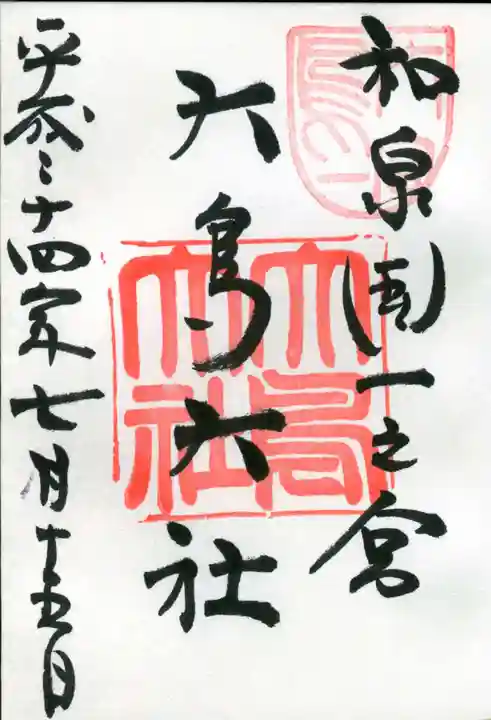 和泉国一之宮
大鳥大社
平成二十四年七月十五日
大鳥
大社